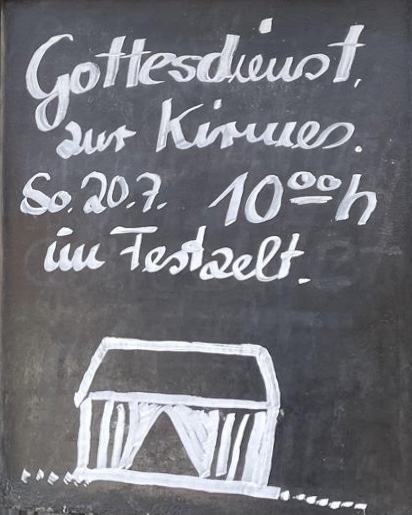 Gottesdienst.
zur Kirmes.
So. 20.7. 10⁰⁰h
im Festzelt.